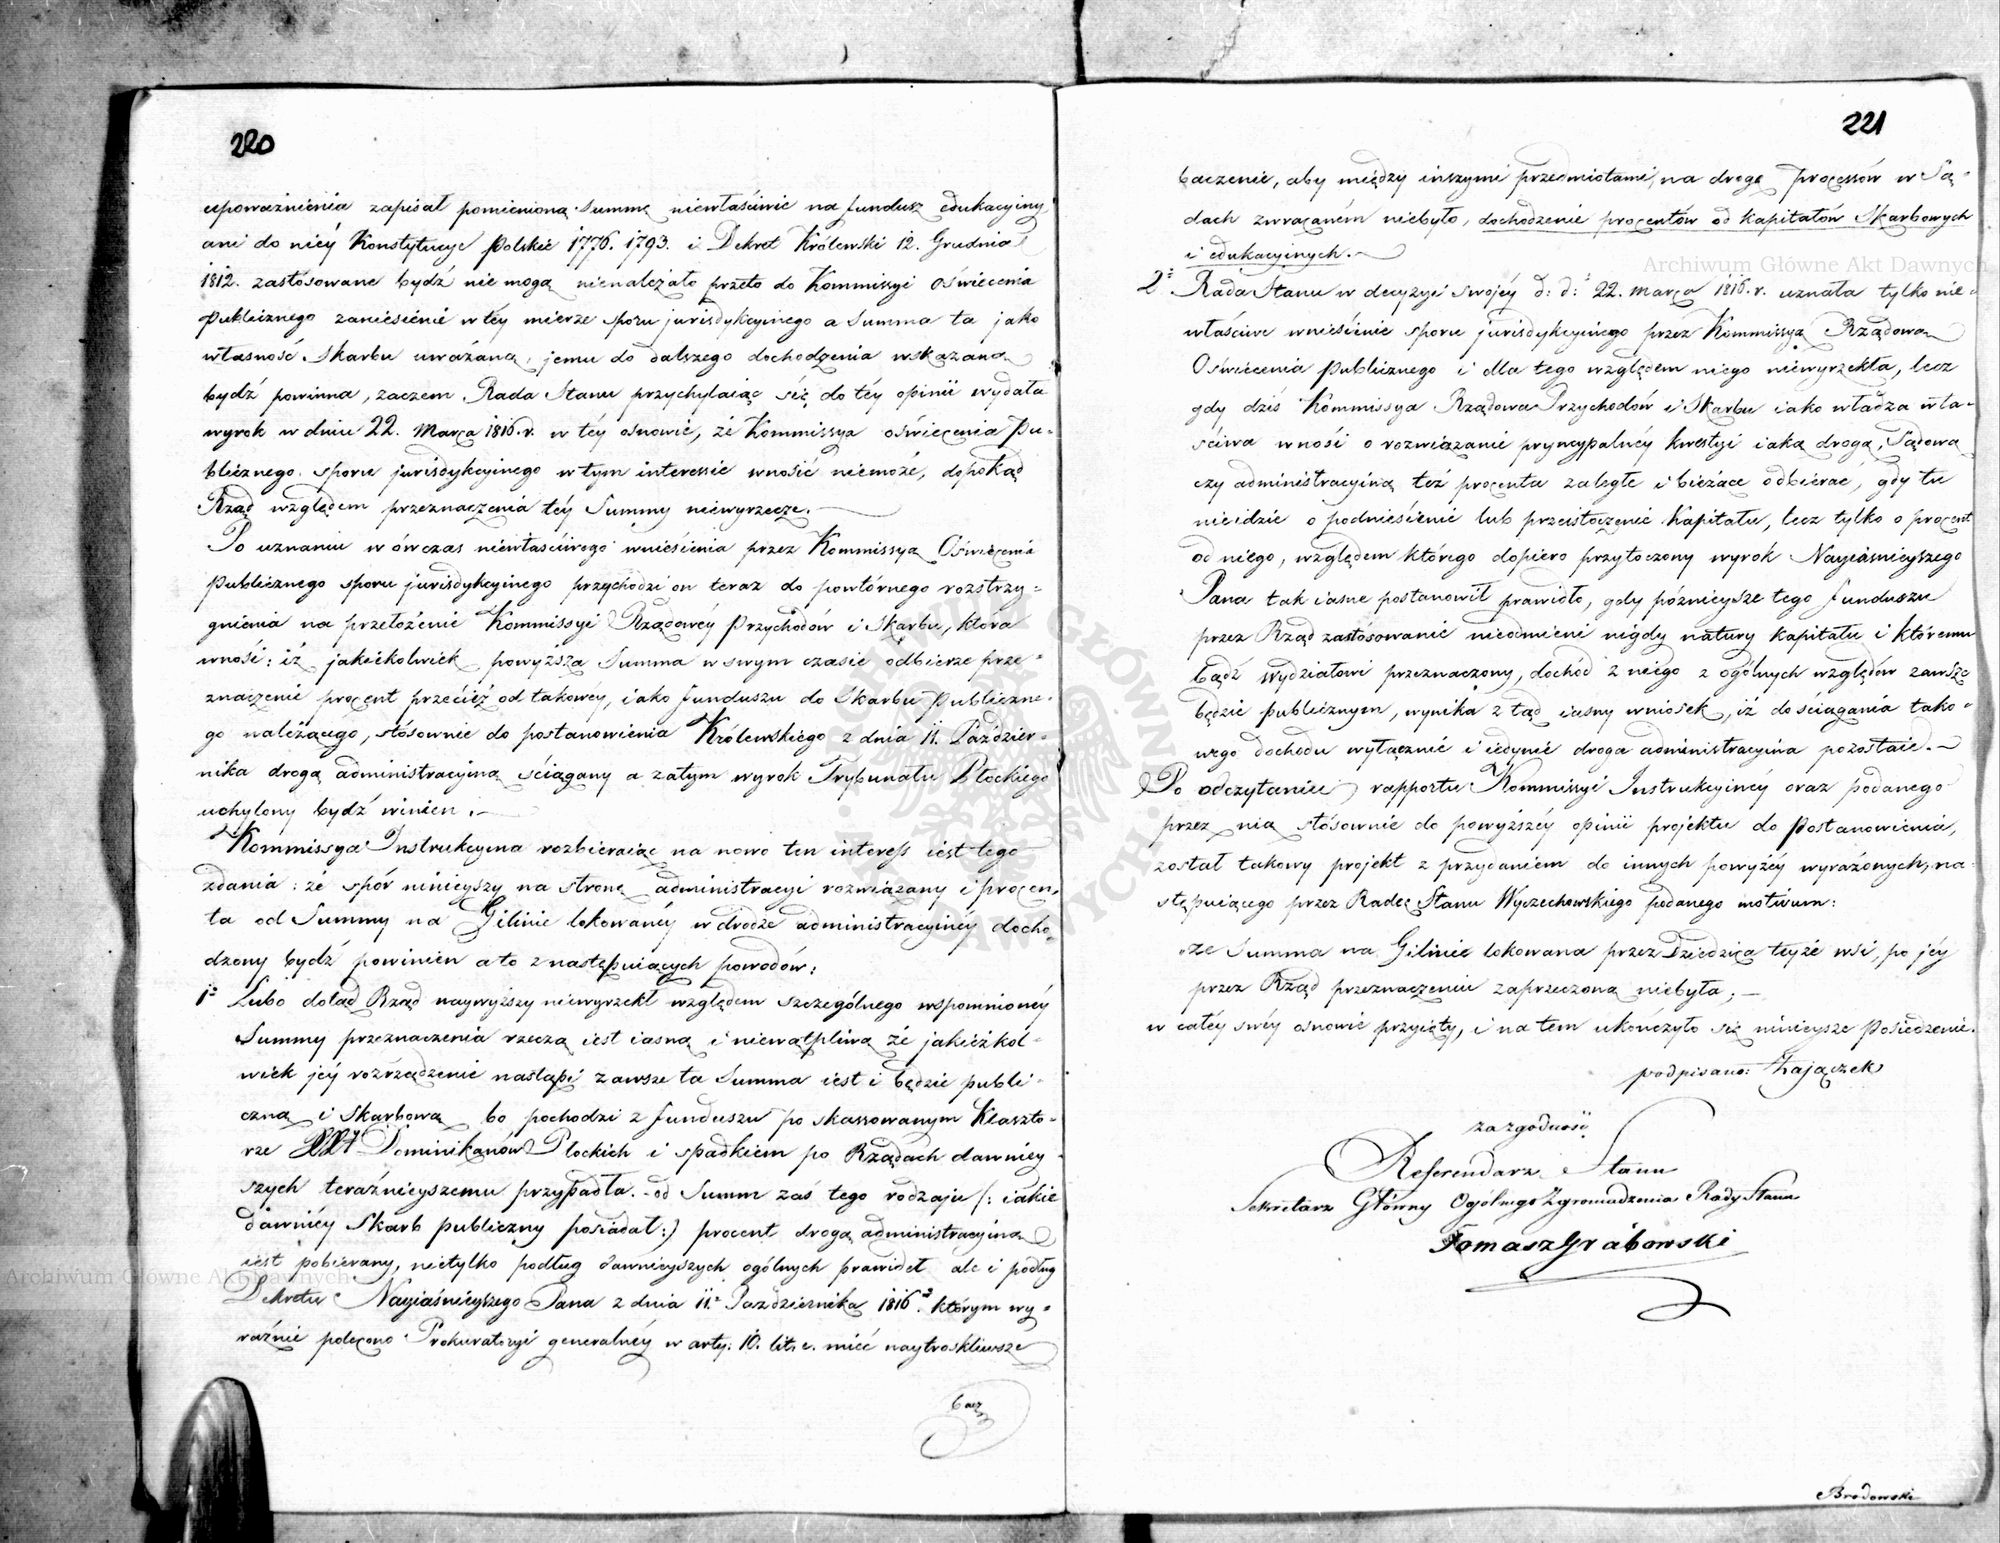 220
upoważnienia zapisał pomienioną Summę niewłaściwie na fundusz edukacyiny
ani do niéy Konstytucye Polskie 1776. 1793. i Dekret Królewski 12. Grudnia
1812. zastósowane bydź nie mogą nienależało przeto do Kommissyi Oświecenia
Publicznego zaniesienie w téy mierze sporu jurisdykcyinego a Summa ta jako
własność Skarbu uważana, jemu do dalszego dochodzenia wskazana
bydź powinna, zaczem Rada Stanu przychylaiąc się do téy opinii wydała
wyrok w dniu 22. Marca 1816. r. w téy osnowie, że Kommissya Oświecenia Pu-
blicznego sporu jurisdykcyinego w tym interessie wnosić niemoże, dopokąd
Rząd względem przeznaczenia téy Summy niewyrzecze.
Po uznaniu wówczas niewłaściwego wniesienia przez Kommissyą Oświecenia
Publicznego sporu jurisdykcyinego przychodzi on teraz do powtórnego rozstrzy-
gnienia na przełożenie Kommissyi Rządowéy Przychodów i Skarbu, która
wnosi: iż jakiekolwiek powyższa Summa w swym czasie odbierze prze-
znaczenie procent przecież od takowéy, iako funduszu do Skarbu Publiczne-
go należącego, stósownie do postanowienia Królewskiego z dnia 11. Paździer-
nika drogą administracyiną ściągany a zatym wyrok Trybunału Płockiego
uchylony bydź winien.
Kommissya Instrukcyina rozbieraiąc na nowo ten interess iest tego
zdania: że spór ninieyszy na stronę administracyi rozwiązany i procen-
ta od Summy na Gilinie lokowanéy w drodze administracyinéy docho-
dzony bydź powinien a to z następuiących powodów:
1º Lubo dotąd Rząd naywyższy niewyrzekł względem szczególnego wspomnionéy
Summy przeznaczenia rzeczą iest iasną i niewątpliwą że jakieżkol-
wiek jéy rozrządzenie nastąpi zawsze ta Summa iest i będzie publi-
czną i Skarbową bo pochodzi z funduszu po skassowanym Klaszto-
rze XX Dominikanów Płockich i spadkiem po Rządach dawniéy-
szych teraźnieyszemu przypadła. od Summ zaś tego rodzaju (: iakie
dawniéy Skarb publiczny posiadał:) procent drogą administracyiną
iest pobierany, nietylko podług dawnieyszych ogólnych prawideł ale i podług
Dekretu Nayiaśnieyszego Pana z dnia 11. Października 1816 którym wy-
raźnie polecono Prokuratoryi generalnéy w arty: 10. lit. c. mieć naytroskliwsze
bacz
221
baczenie, aby między inszymi przedmiotami, na drogę processów w Są-
dach zwracaném niebyło, dochodzenie procentów od kapitałów Skarbowych
i edukacyinych.
2º Rada Stanu w decyzyi swojéy d: d: 22. Marca 1816. r. uznała tylko nie-
właściwe wniesienie sporu jurisdykcyinego przez Kommissyą Rządową
Oświecenia Publicznego i dla tego względem niego niewyrzekła, lecz
gdy dziś Kommissya Rządowa Przychodów i Skarbu iako władza wła-
ściwa wnosi o rozwiązanie pryncypalnéy kwestyi iaką drogą, Sądową
czy administracyiną też procenta zaległe i bieżące odbierać, gdy tu
nieidzie o podniesienie lub przeistoczenie Kapitału, lecz tylko o procent
od niego, względem którego dopiero przytoczony wyrok Nayiaśnieyszego
Pana tak iasne postanowił prawidło, gdy późnieysze tego funduszu
przez Rząd zastósowanie nieodmieni nigdy natury kapitału i któremu
bądź wydziałowi przeznaczony, dochód z niego z ogólnych względów zawsze
będzie publicznym, wynika z tąd iasny wniosek, iż do ściągania tako-
wego dochodu wyłącznie i iedynie droga administracyina pozostaie.
Po odczytaniu rapportu Kommissyi Instrukcyinéy oraz podanego
przez nią stósownie do powyższéy opinii projektu do Postanowienia,
został takowy projekt z przydaniem do innych powyżéy wyrażonych, na-
stępuiącego przez Radcę Stanu Wyczechowskiego podanego motivum:
„że Summa na Gilinie lokowana przez Dziedzica teyże wsi, po jéy
przez Rząd przeznaczeniu zaprzeczoną niebyła;
w całéy swéy osnowie przyięty, i na tem ukończyło się ninieysze Posiedzenie.
podpisano: Zajączek
za zgodność
Referendarz Stanu
Sekretarz Główny Ogólnego Zgromadzenia Rady Stanu
Tomasz Grabowski
Brodowski
Archiwum Główne Akt Dawnych
Archiwum Główne Akt Dawnych
ARCHIWUM GŁÓWNE AKT DAWNYCH